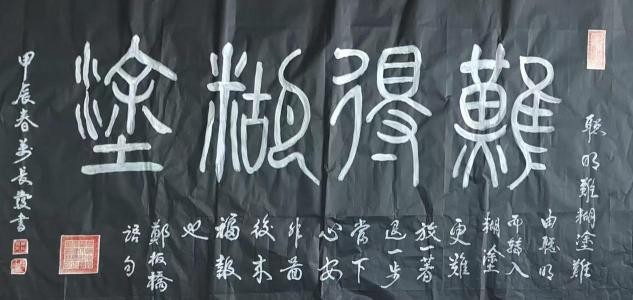 難得糊塗
聰明難糊塗難
由聰明
而轉入
糊塗
更難
放一著
退一步
當下
心安
非圖
後來
福報
也
鄭板橋
語句
甲辰春長書